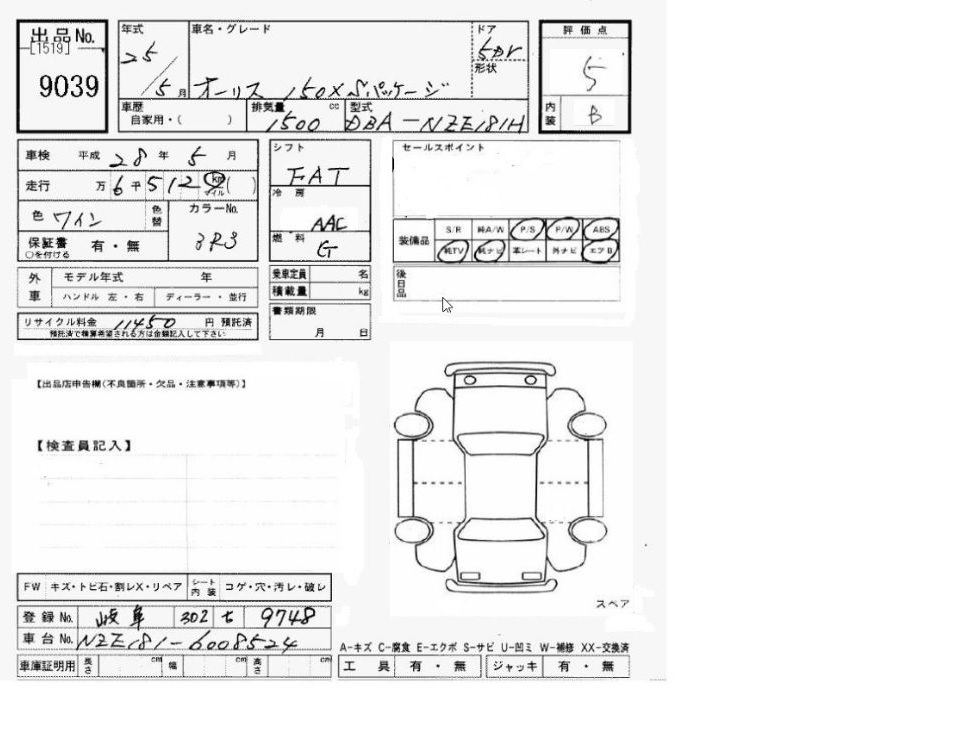 出品No.
[1519]
9039
年式
25/5月
車名・グレード
オーリス 150X Sパッケージ
ドア
5DR
形状
車歴
自家用・( )
排気量 cc
1500
型式
DBA-NZE181H
評価点
5
内装
B
車検 平成 28年 5月
走行 万6千512 km マイル ( )
色 ワイン
色替
カラーNo.
3R3
保証書 有・無
○を付ける
シフト
FAT
冷房
AAC
燃料
G
セールスポイント
装備品
S/R 純A/W P/S P/W ABS
純TV 純ナビ 革シート 外ナビ エアB
後日品
外車
モデル年式 年
ハンドル 左・右
ディーラー・並行
乗車定員 名
積載量 kg
書類期限
月 日
リサイクル料金 11450 円 預託済
預託済で積算希望される方は金額記入して下さい
【出品店申告欄(不良箇所・欠品・注意事項等)】
【検査員記入】
FW キズ・トビ石・割レX・リペア
シート内装 コゲ・穴・汚レ・破レ
スペア
登録No. 岐阜 302 ち 9748
車台No. NZE181-6008524
車庫証明用 長さ cm 幅 cm 高さ cm
A-キズ C-腐食 E-エクボ S-サビ U-凹ミ W-補修 XX-交換済
工具 有・無
ジャッキ 有・無